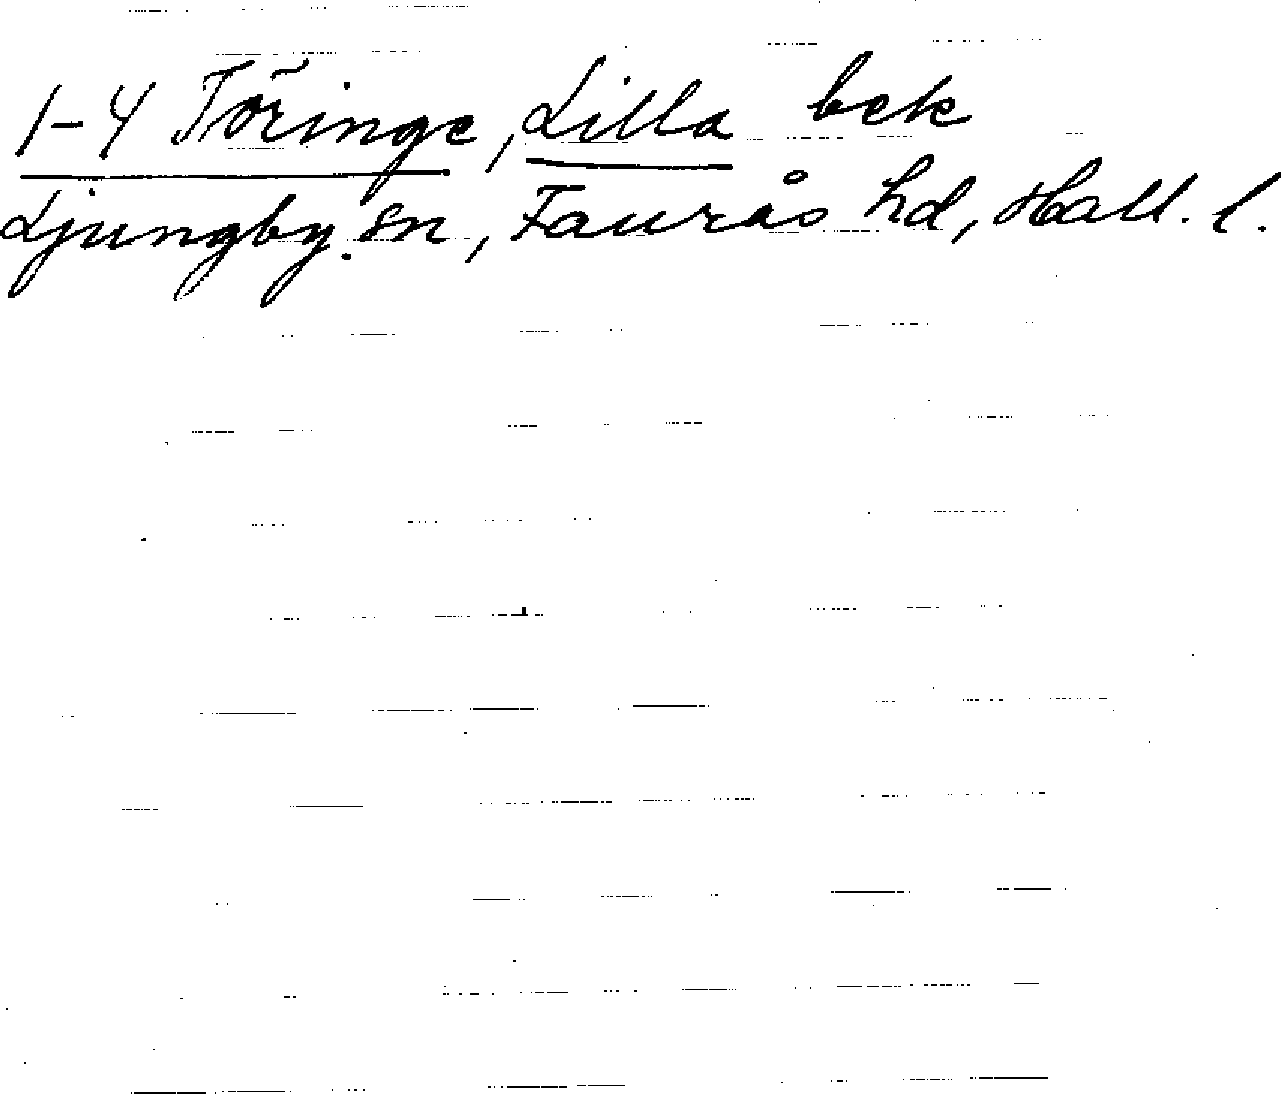 1-4 Töringe, Lilla bek
Ljungby sn, Faurås hd, Hall. l.